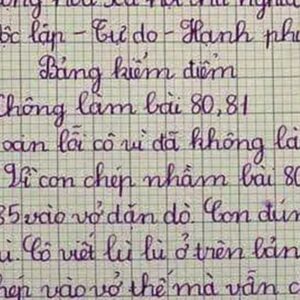 ộc lập - Tự do - Hạnh phú
Bảng kiểm điểm
Không làm bài 80, 81
lỗi cô vì đã không là
Vì con chép nhầm bài 80
85 vào vở dặn dò. Con đún
ù. Cô viết lù lù ở trên bản
hép vào vở thế mà vẫn c